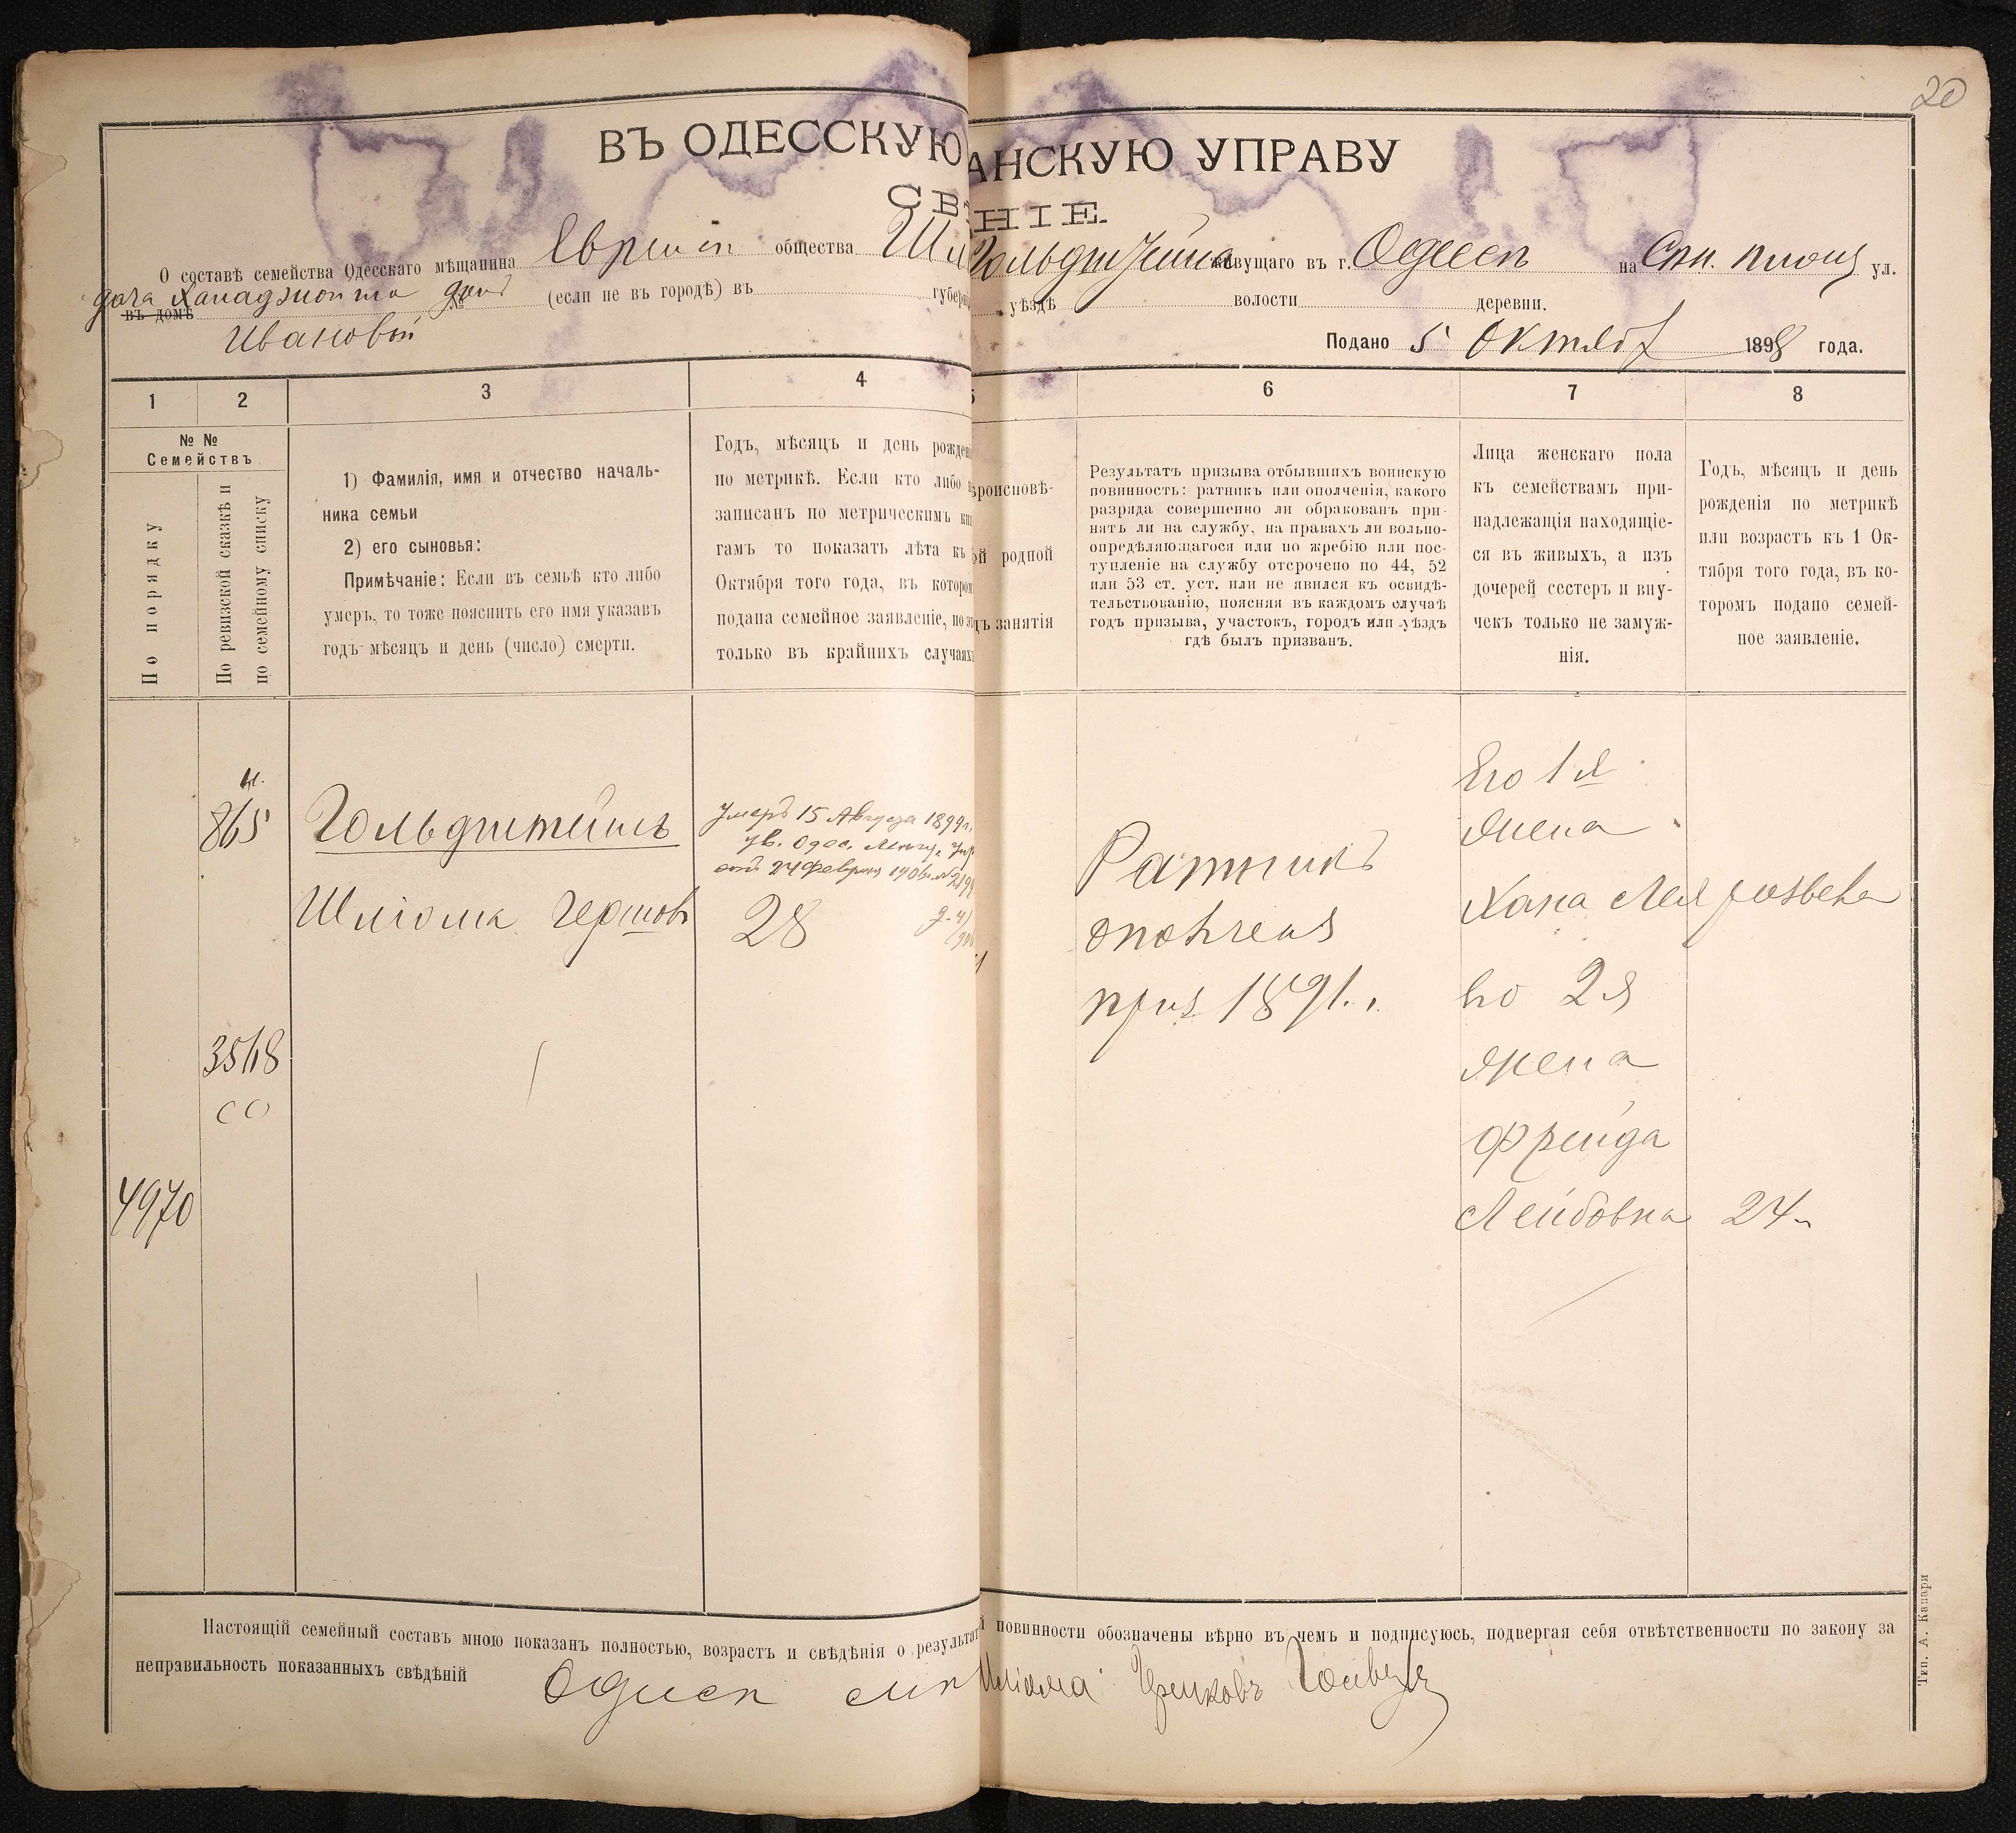 20
ВЪ ОДЕССКУЮ АНСКУЮ УПРАВУ
СВ НІЕ.
О составѣ семейства Одесскаго мѣщанина общества Гольдштейна живущаго въ г. Одессѣ на ул.
дача
въ домѣ № (если не въ городѣ) въ губерн уѣздѣ волости деревни.
Ивановой
Подано 5 Октяб 1898 года.
1 2 3 4 5 6 7 8
№ №
Семействъ
По порядку
По ревизской сказкѣ и
по семейному списку
1) Фамилія, имя и отчество началь-
ника семьи
2) его сыновья:
Примѣчаніе: Если въ семьѣ кто либо
умеръ, то тоже пояснить его имя указавъ
годъ мѣсяцъ и день (число) смерти.
Годъ, мѣсяцъ и день рожден
по метрикѣ. Если кто либо
записанъ по метрическимъ кни
гамъ то показать лѣта къ
Октября того года, въ которо
подана семейное заявленіе, но эт
только въ крайнихъ случаях
роисповѣ-
ой родной
дъ занятія
Результатъ призыва отбывшихъ воинскую
повинность: ратникъ или ополченія, какого
разряда совершенно ли обракованъ при-
нятъ ли на службу, на правахъ ли вольно-
опредѣляющагося или по жребію или пос-
тупленіе на службу отсрочено по 44, 52
или 53 ст. уст. или не явился къ освидѣ-
тельствованію, поясняя въ каждомъ случаѣ
годъ призыва, участокъ, городъ или уѣздъ
гдѣ былъ призванъ.
Лица женскаго пола
къ семействамъ при-
надлежащія находящіе-
ся въ живыхъ, а изъ
дочерей сестеръ и вну-
чекъ только не замуж-
нія.
Годъ, мѣсяцъ и день
рожденія по метрикѣ
или возрастъ къ 1 Ок-
тября того года, въ ко-
торомъ подано семей-
ное заявленіе.
865
Гольдштейнъ
Шліома Гершков
умеръ 15 Августа 1899 г.
ув. Одес. Мѣщ. Упр
отъ 24 Февраля 1906
28
Ратникъ
ополчен
приз 1891 г.
Его 1я
жена
Хана Лея разведена
его 2я
жена
Фрейда
Лейбовна 24
3568
4970
Настоящій семейный составъ мною показанъ полностью, возрастъ и свѣдѣнія о результат й повинности обозначены вѣрно въ чемъ и подписуюсь, подвергая себя отвѣтственности по закону за
неправильность показанныхъ свѣдѣній
Шліома Гершковъ
Тип. А. Канари